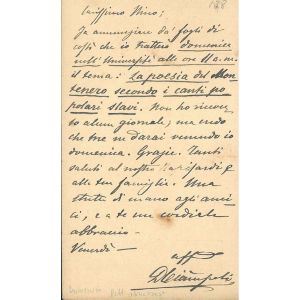 Carissimo Nino,
Fa annunziare da' fogli di
costì che io tratterò domenica
nell'Università alle ore 11 a.m.
il tema: La poesia del Monte
nero secondo i canti po
polari slavi. Non ho ricevu
to alcun giornale; ma credo
che me ne darai venendo io
domenica. Grazie. Tanti
saluti al nostro
alla tua famiglia. Una
stretta di mano agli ami
ci, e a te un cordiale
abbraccio
Venerdì
aff
DCiàmpoli